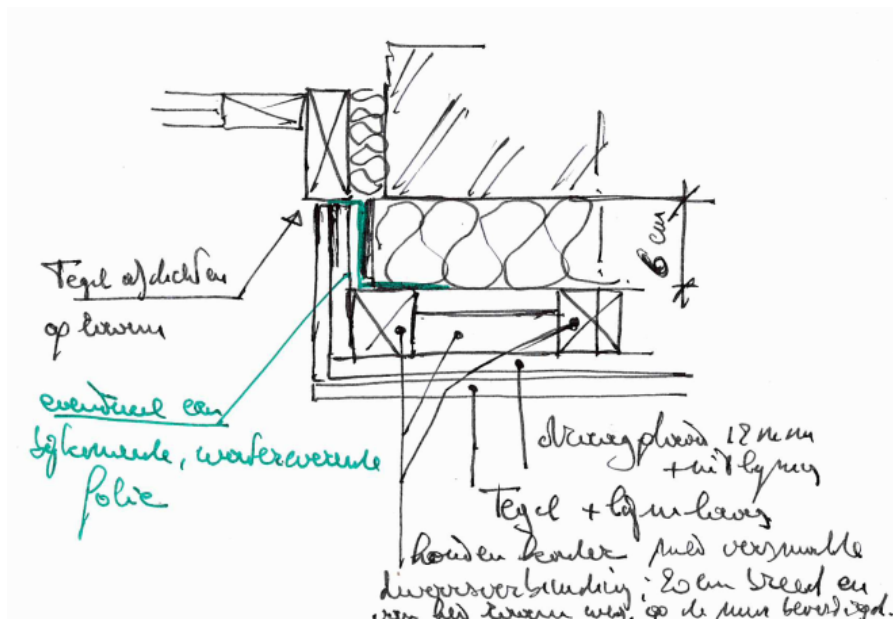 6 cm
Tegel afdichten
op kraam
eventueel een
bijkomende, waterwerende
folie
draagplaat 12 mm
+ uitlijnen
Tegel + lijmlaag
houten kader met versmalde
dwarsverbinding: 20 cm breed en
van het kraam weg, op de muur bevestigd.